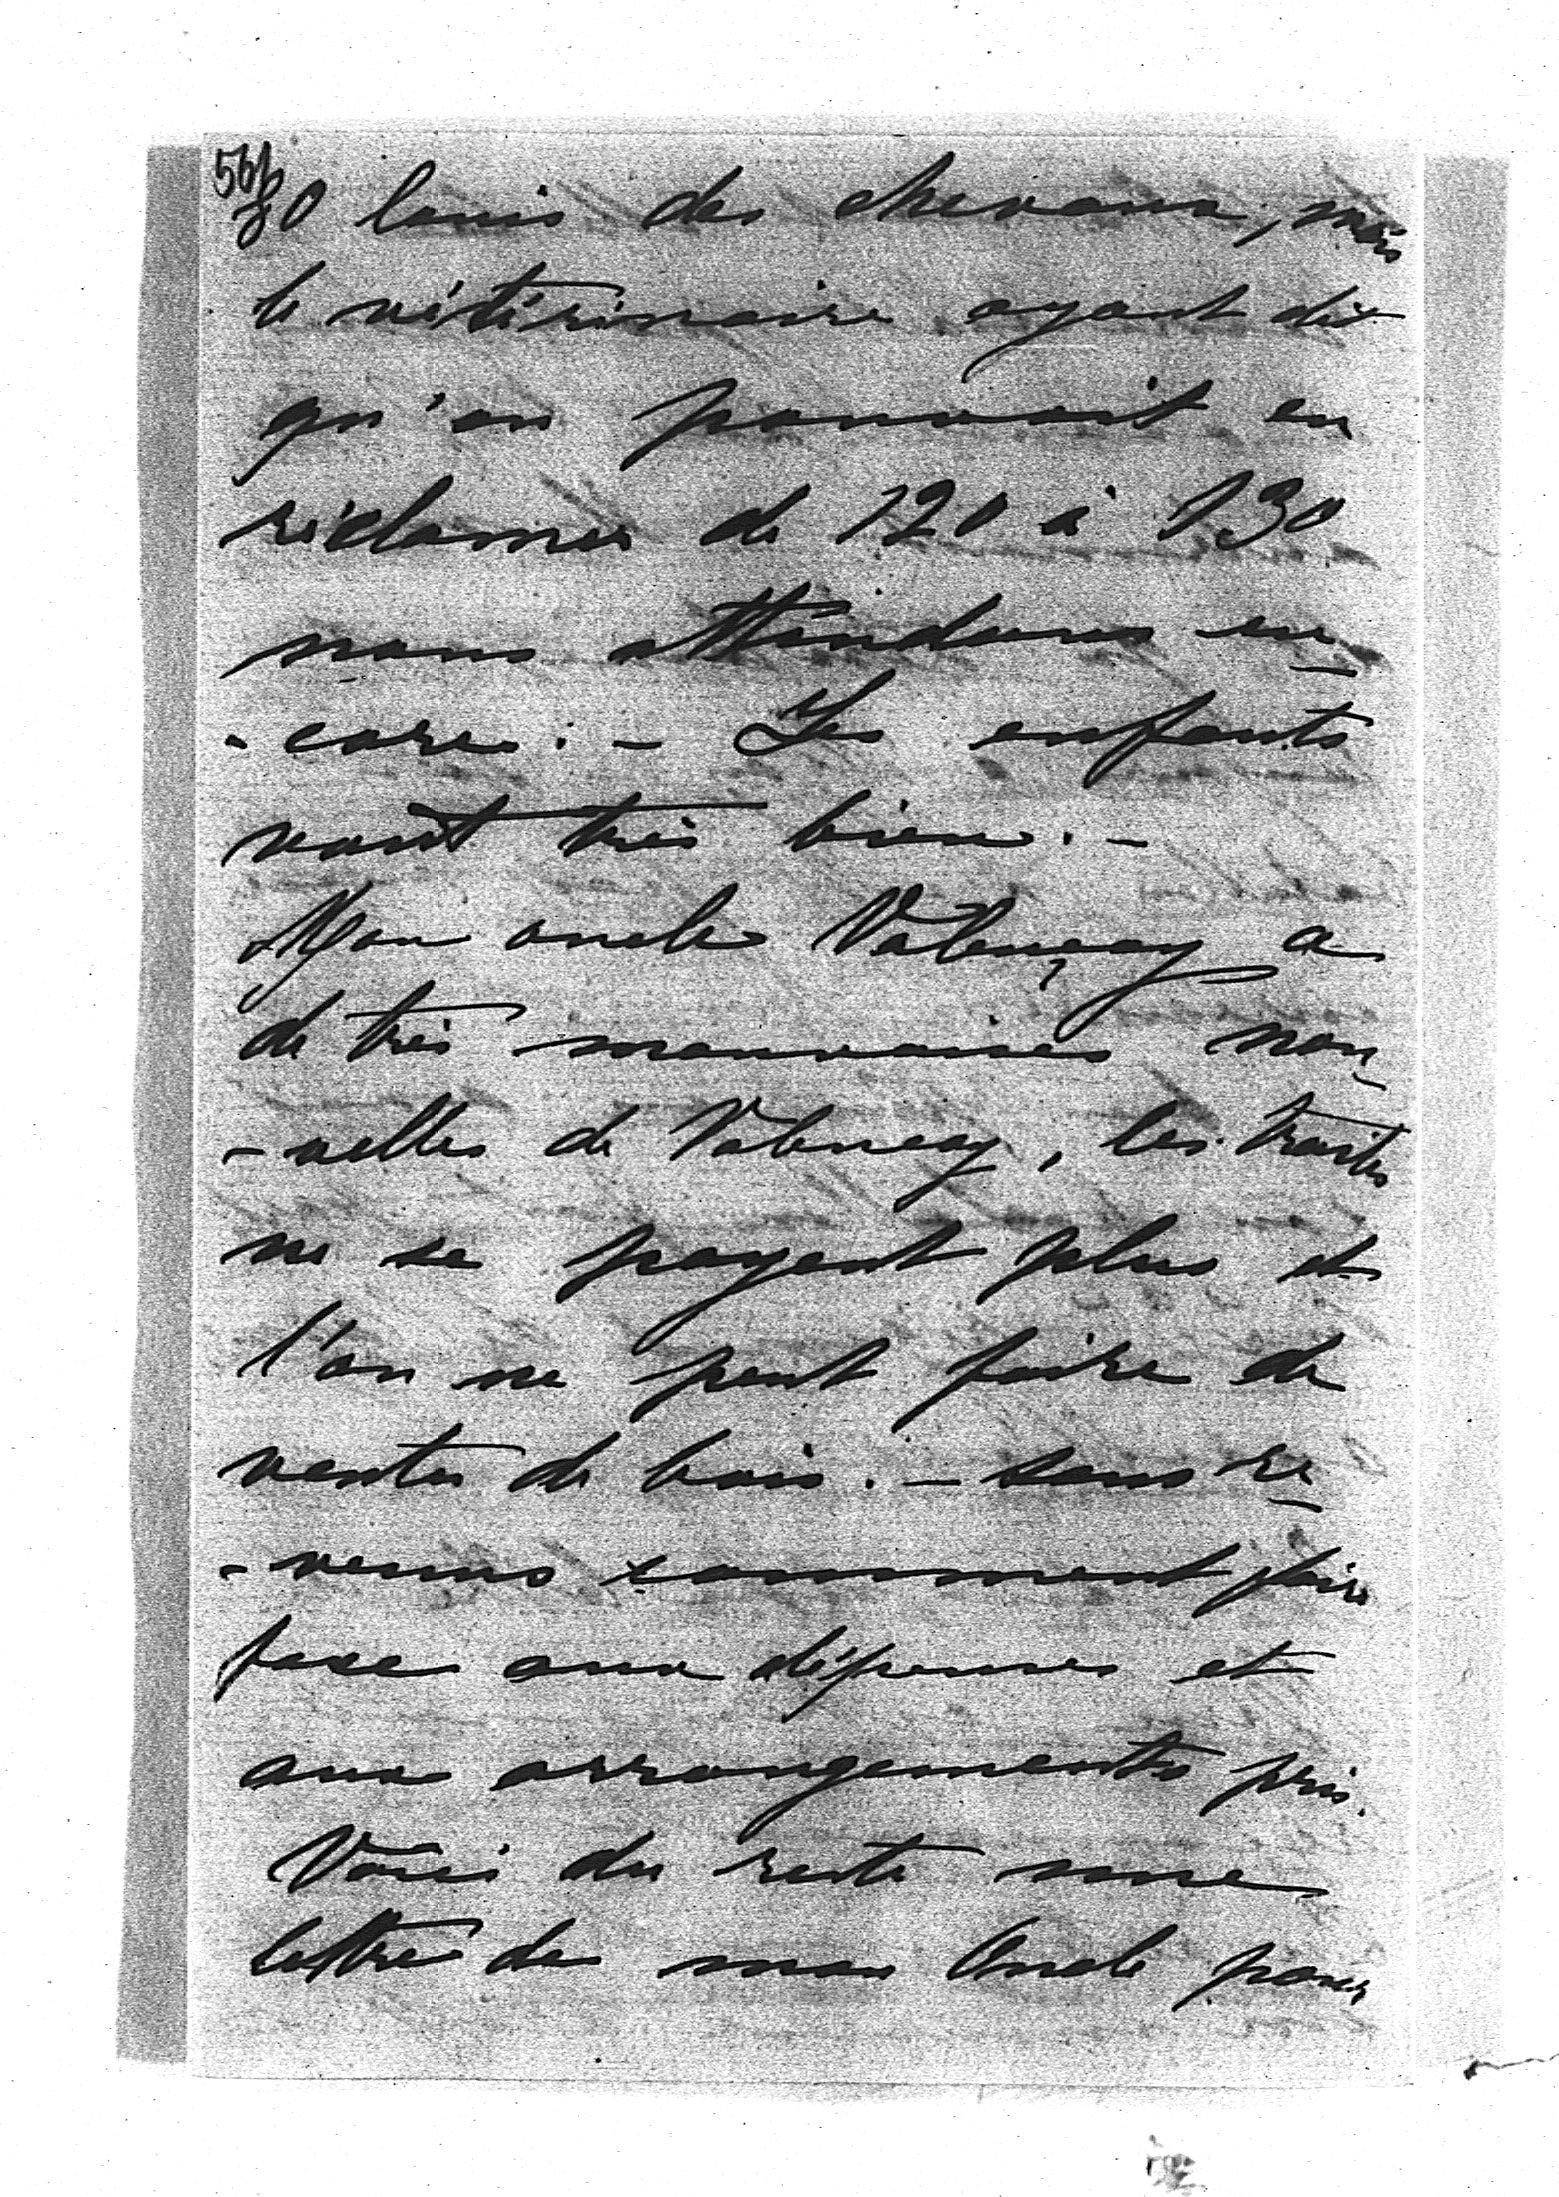 80 louis des chevaux, mais
le vétérinaire ayant dit
qu'on pouvait en
réclamer de 120 à 130
nous attendons en
- core. - Les enfants
vont très bien. -
Mon oncle Valençay a
de très mauvaises nou
- velles de Valençay, les traites
ne se payent plus et
l'on ne peut faire de
ventes de bois. - sans re
- venus comment faire
face aux dépenses et
aux arrangements pris.
Voici du reste une
lettre de mon Oncle pour